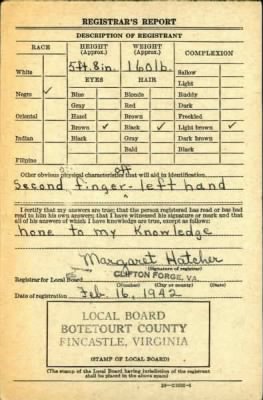 REGISTRAR'S REPORT
DESCRIPTION OF REGISTRANT
RACE HEIGHT (Approx.) WEIGHT (Approx.) COMPLEXION
5ft. 8in. 160 lb.
White Sallow
EYES HAIR Light
Negro ✓ Blue Blonde Ruddy
Gray Red Dark
Oriental Hazel Brown Freckled
Brown ✓ Black ✓ Light brown ✓
Indian Black Gray Dark brown
Bald Black
Filipino
Other obvious physical characteristics that will aid in identification
off
Second finger - left hand
I certify that my answers are true; that the person registered has read or has had
read to him his own answers; that I have witnessed his signature or mark and that
all of his answers of which I have knowledge are true, except as follows:
none to my knowledge
Margaret Hatcher
(Signature of registrar)
Registrar for Local Board CLIFTON FORGE, VA.
(Number) (City or county) (State)
Date of registration Feb. 16, 1942
LOCAL BOARD
BOTETOURT COUNTY
FINCASTLE, VIRGINIA
(STAMP OF LOCAL BOARD)
(The stamp of the Local Board having jurisdiction of the registrant
shall be placed in the above space)